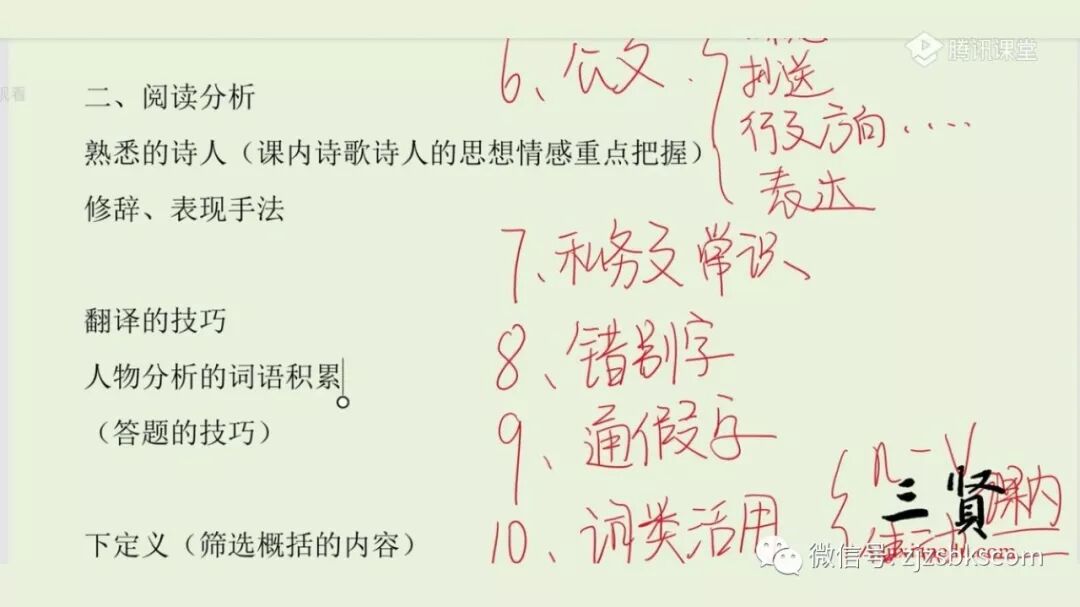 腾讯课堂
观看
二、阅读分析
熟悉的诗人（课内诗歌诗人的思想情感重点把握）
修辞、表现手法
翻译的技巧
人物分析的词语积累
（答题的技巧）
下定义（筛选概括的内容）
6、公文
抄送
行文方向....
表达
7、私务文常识、
8、错别字
9、通假字
10、词类活用
n-V
课内
三贤
微信号: zjzsbkscom